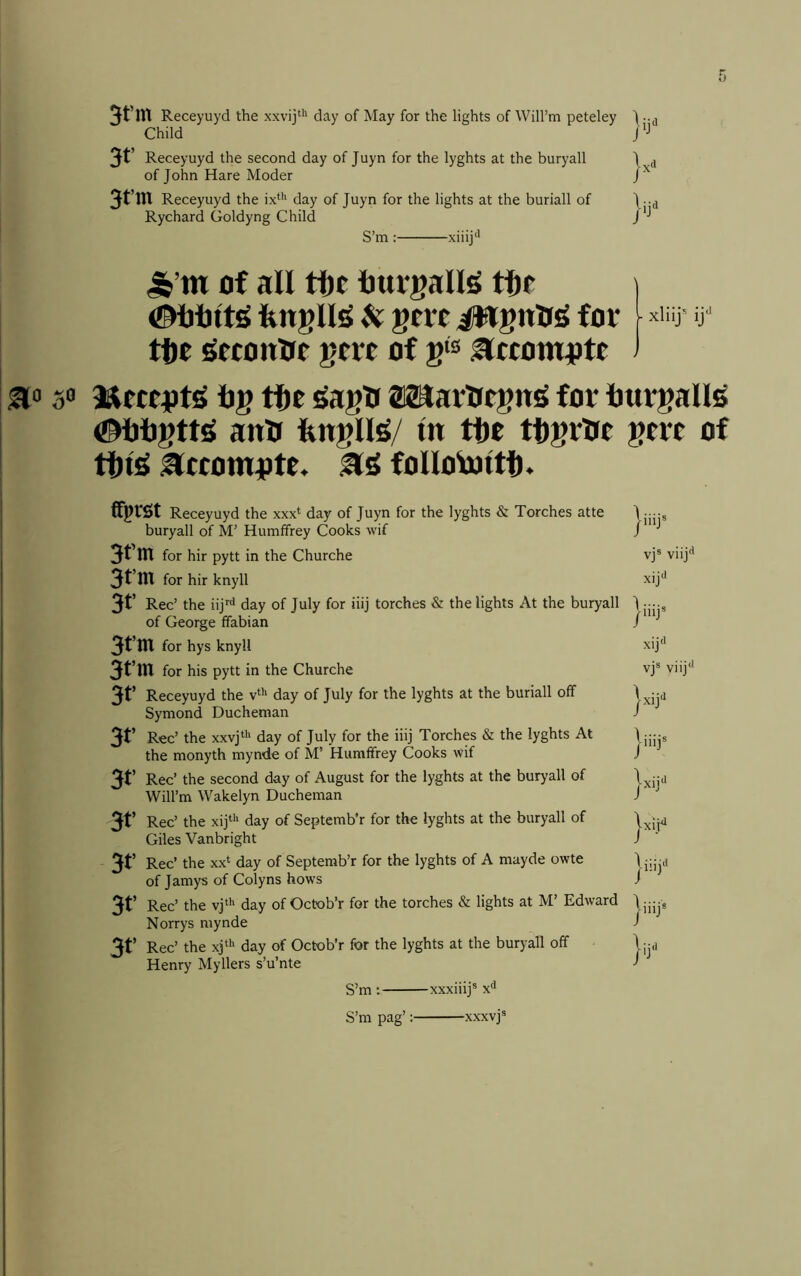 5
It'm Receyuyd the xxvijth day of May for the lights of Will'm peteley } ijd
Child
It' Receyuyd the second day of Juyn for the lyghts at the buryall } xd
of John Hare Moder
It'm Receyuyd the ixth day of Juyn for the lights at the buriall of } ijd
Rychard Goldyng Child
S'm :———xiiijd
S'm of all the buryalls the
Obbits knylls & yere Mynds for } xliijs ijd
the seconde yere of yis Accompte
Ao 5o Recepts by the sayd Wardeyns for buryalls
Obbytts and knylls/ in the thyrde yere of
this Accompte. As followith.
ffyrst Receyuyd the xxxt day of Juyn for the lyghts & Torches atte } iiijs
buryall of M' Humffrey Cooks wif
It'm for hir pytt in the Churche vjs viijd
It'm for hir knyll xijd
It' Rec' the iijrd day of July for iiij torches & the lights At the buryall } iiijs
of George ffabian
It'm for hys knyll xijd
It'm for his pytt in the Churche vjs viijd
It' Receyuyd the vth day of July for the lyghts at the buriall off } xijd
Symond Ducheman
It' Rec' the xxvjth day of July for the iiij Torches & the lyghts At } iiijs
the monyth mynde of M' Humffrey Cooks wif
It' Rec' the second day of August for the lyghts at the buryall of } xijd
Will'm Wakelyn Ducheman
It' Rec' the xijth day of Septemb'r for the lyghts at the buryall of } xijd
Giles Vanbright
It' Rec' the xxt day of Septemb'r for the lyghts of A mayde owte } iiijd
of Jamys of Colyns hows
It' Rec' the vjth day of Octob'r for the torches & lights at M' Edward } iiijs
Norrys mynde
It' Rec' the xjth day of Octob'r for the lyghts at the buryall off } ijd
Henry Myllers s'u'nte
S'm :———xxxiiijs xd
S'm pag' :———xxxvjs